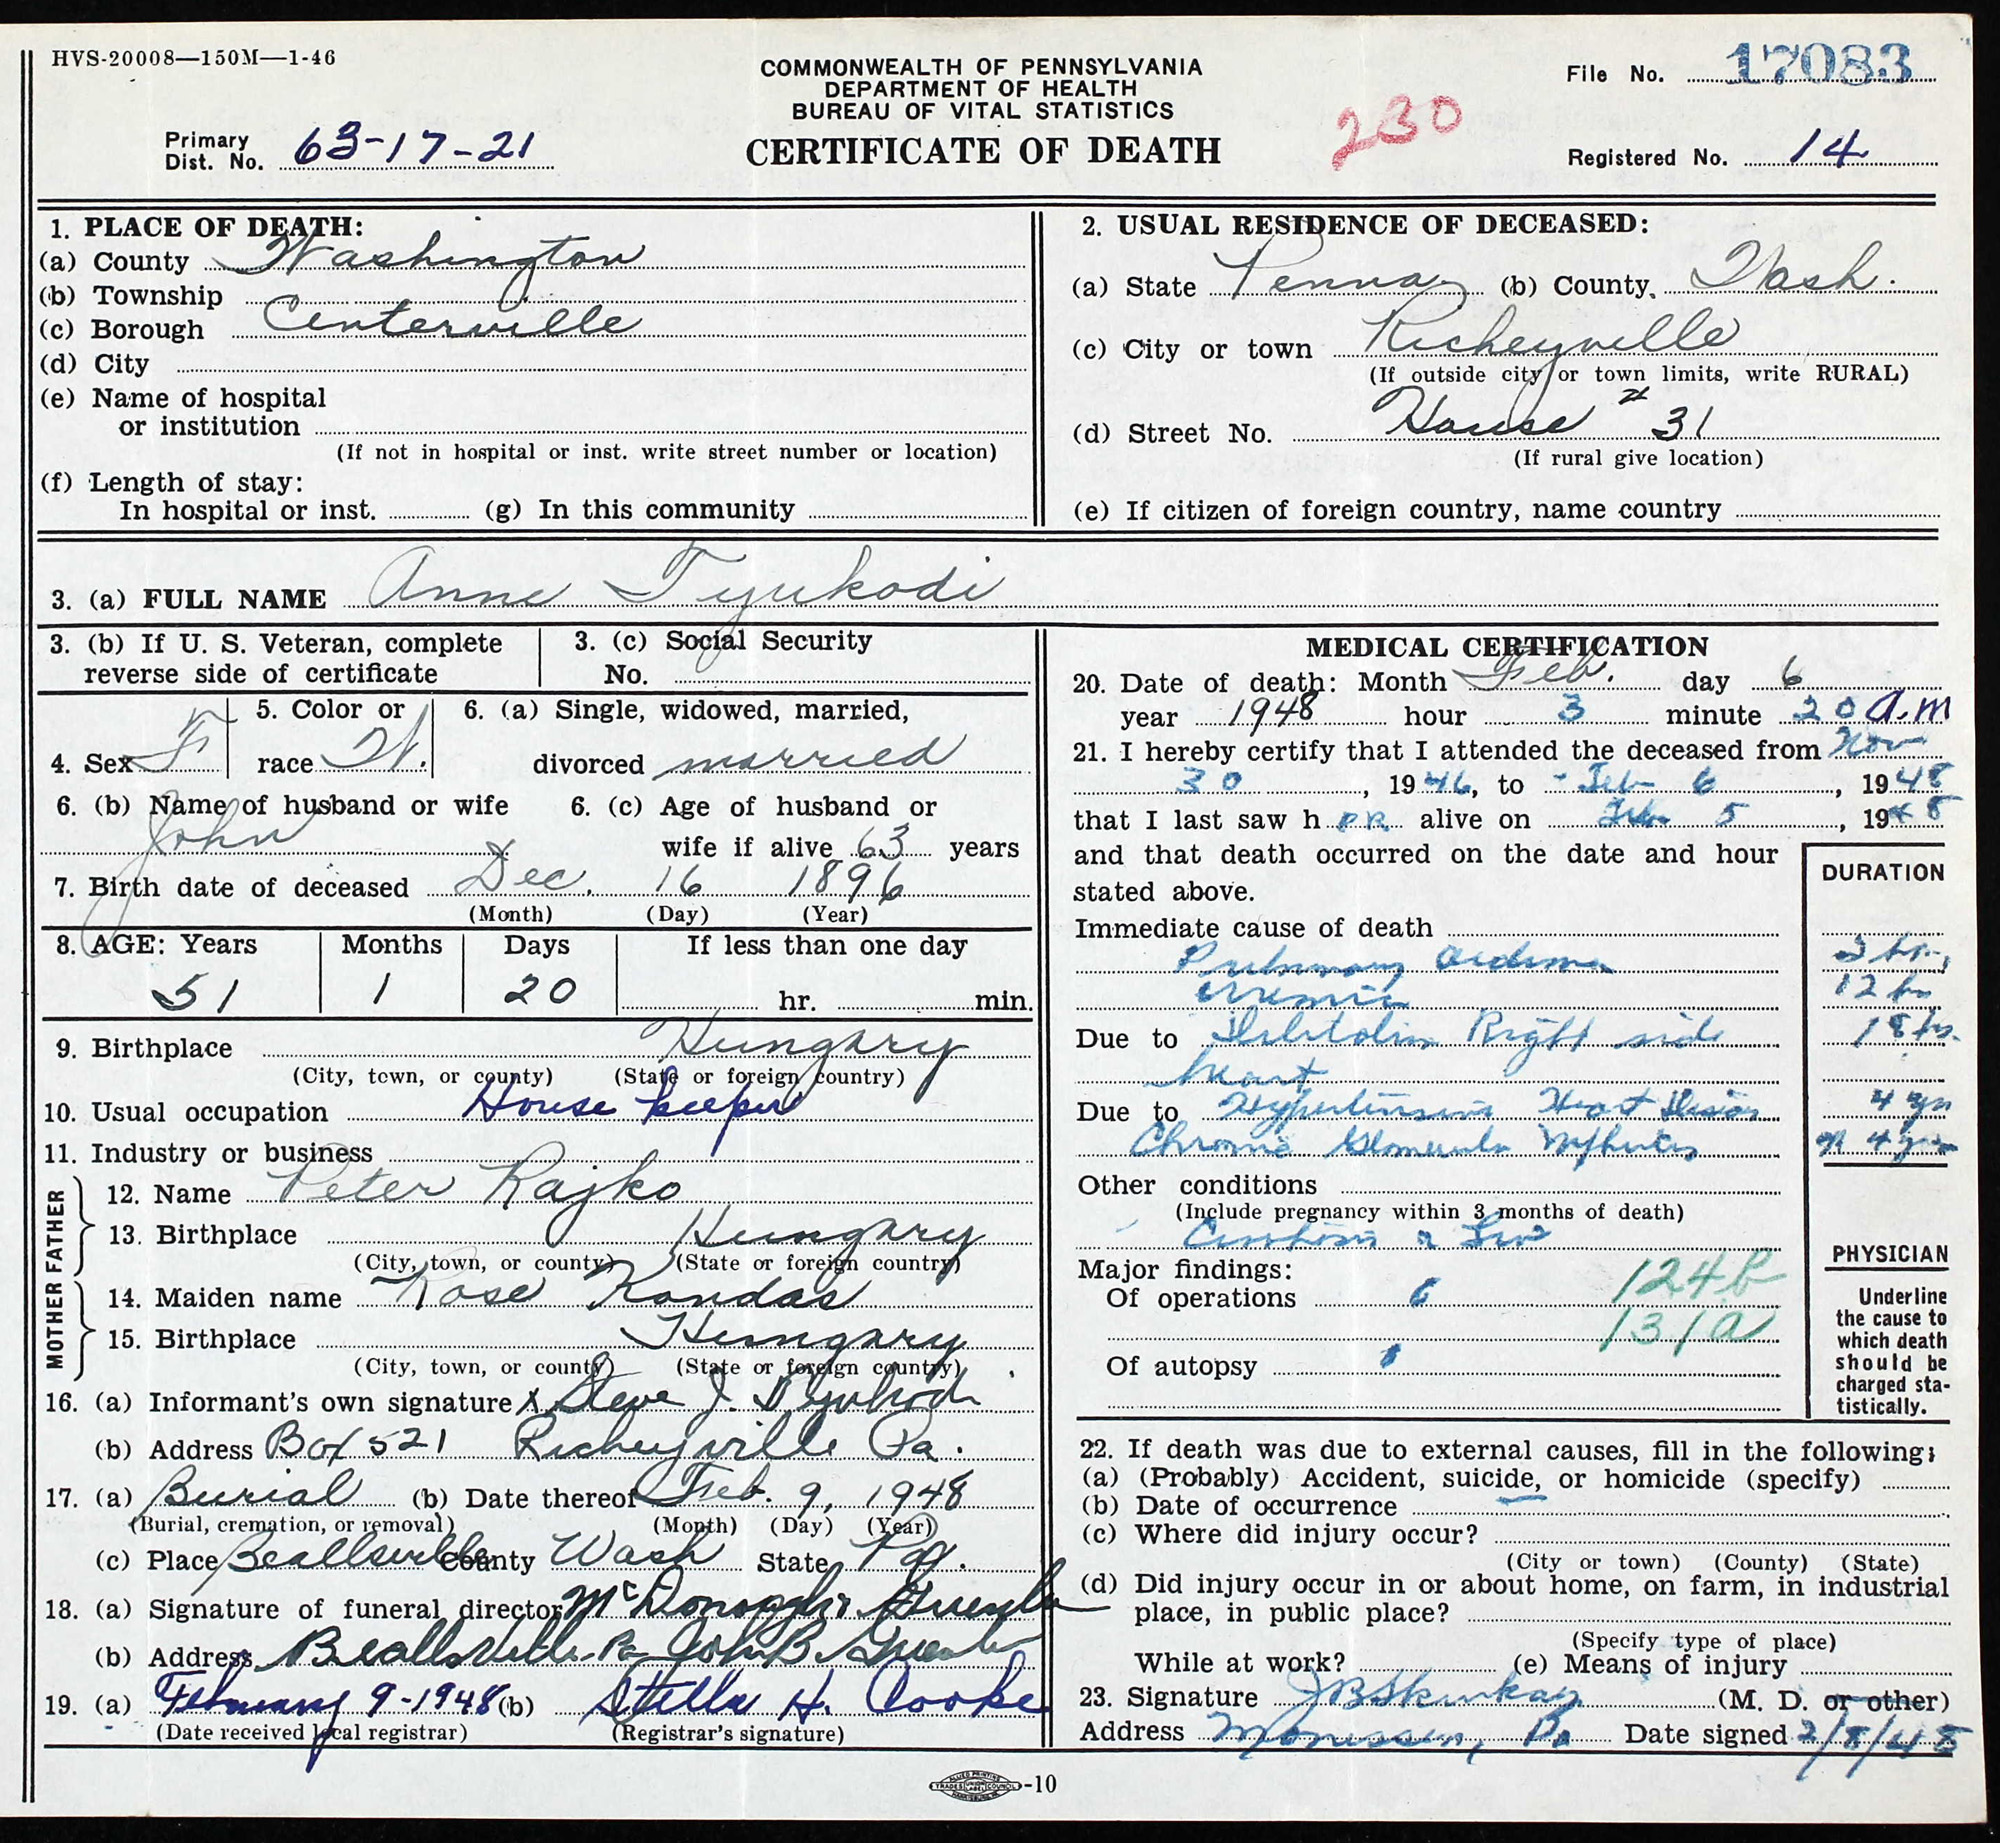 HVS-20008—150M—1-46
COMMONWEALTH OF PENNSYLVANIA
DEPARTMENT OF HEALTH
BUREAU OF VITAL STATISTICS
CERTIFICATE OF DEATH
230
File No. 17083
Primary
Dist. No. 63-17-21
Registered No. 14
1. PLACE OF DEATH:
(a) County Washington
(b) Township
(c) Borough Centerville
(d) City
(e) Name of hospital
or institution
(If not in hospital or inst. write street number or location)
(f) Length of stay:
In hospital or inst. (g) In this community
2. USUAL RESIDENCE OF DECEASED:
(a) State Penna (b) County. Wash.
(c) City or town Richeyville
(If outside city or town limits, write RURAL)
(d) Street No. House # 31
(If rural give location)
(e) If citizen of foreign country, name country
3. (a) FULL NAME Anne Tyukodi
3. (b) If U. S. Veteran, complete
reverse side of certificate
3. (c) Social Security
No.
4. Sex F
5. Color or
race W.
6. (a) Single, widowed, married,
divorced married
6. (b) Name of husband or wife
John
6. (c) Age of husband or
wife if alive 63 years
7. Birth date of deceased Dec. 16 1896
(Month) (Day) (Year)
8. AGE: Years Months Days If less than one day
51 1 20 hr. min.
9. Birthplace Hungary
(City, town, or county) (State or foreign country)
10. Usual occupation House keeper
11. Industry or business
FATHER
12. Name Peter Rajko
13. Birthplace Hungary
(City, town, or county) (State or foreign country)
MOTHER
14. Maiden name Rose Kondas
15. Birthplace Hungary
(City, town, or county) (State or foreign country)
16. (a) Informant's own signature X Steve J. Tyukodi
(b) Address Box 521 Richeyville Pa.
17. (a) Burial (b) Date thereof Feb. 9, 1948
(Burial, cremation, or removal) (Month) (Day) (Year)
(c) Place Beallsville County Wash State Pa.
18. (a) Signature of funeral director McDonough &
(b) Address Beallsville Pa John B.
19. (a) February 9-1948 (b) Stella H. Cooke
(Date received local registrar) (Registrar's signature)
MEDICAL CERTIFICATION
20. Date of death: Month Feb. day 6
year 1948 hour 3 minute 20 a.m
21. I hereby certify that I attended the deceased from Nov
30, 1946, to Feb 6, 1948
that I last saw h er alive on Feb 5, 1948
and that death occurred on the date and hour
stated above.
DURATION
Immediate cause of death
Pulmonary oedema
Uremia 12 hr
Due to Right side 18 hrs.
heart
Due to Hypertensive Heart Disease 4 yrs
Chronic Glomerulo Nephritis
Other conditions
(Include pregnancy within 3 months of death)
Cirrhosis of Liver
Major findings:
Of operations 124b
131a
Of autopsy
PHYSICIAN
Underline
the cause to
which death
should be
charged sta-
tistically.
22. If death was due to external causes, fill in the following:
(a) (Probably) Accident, suicide, or homicide (specify)
(b) Date of occurrence
(c) Where did injury occur?
(City or town) (County) (State)
(d) Did injury occur in or about home, on farm, in industrial
place, in public place?
(Specify type of place)
While at work? (e) Means of injury
23. Signature (M. D. or other)
Address Monessen, Pa Date signed 2/8/48
-10